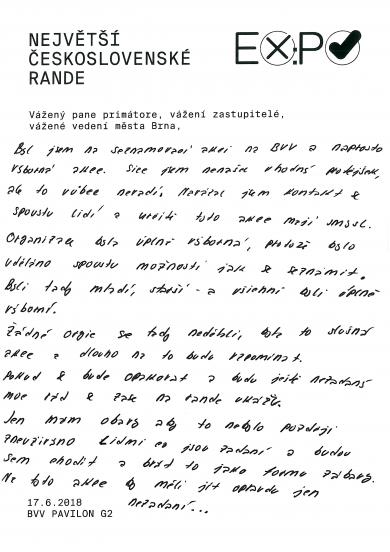 NEJVĚTŠÍ
ČESKOSLOVENSKÉ
RANDE
EXPO
Vážený pane primátore, vážení zastupitelé,
vážené vedení města Brna,
Byl jsem na seznamovací akci na BVV a naprosto
výborná akce. Sice jsem nenašel vhodný protějšek,
ale to vůbec nevadí, Navázal jsem kontakt s
spoustu lidí a určitě tyto akce mají smysl.
Organizace byla úplně výborná, protože bylo
uděláno spoustu možností jak se seznámit.
Byli tady mladí, starší - a všichni byli úplně
výborní.
Žádné orgie se tady neděhli, byla to slušná
akce a dlouho na to budu vzpomínat.
Pokud se bude opakovat a budu ještě nezadaný
moc rád se zase na rande ukážu.
Jen mám obavy aby to nebylo později
zneužíváno lidmi co jsou zadaní a budou
sem chodit a brát to jako formu zábavy.
Na tyto akce by měli jít opravdu jen
nezadaní...
17.6.2018
BVV PAVILON G2